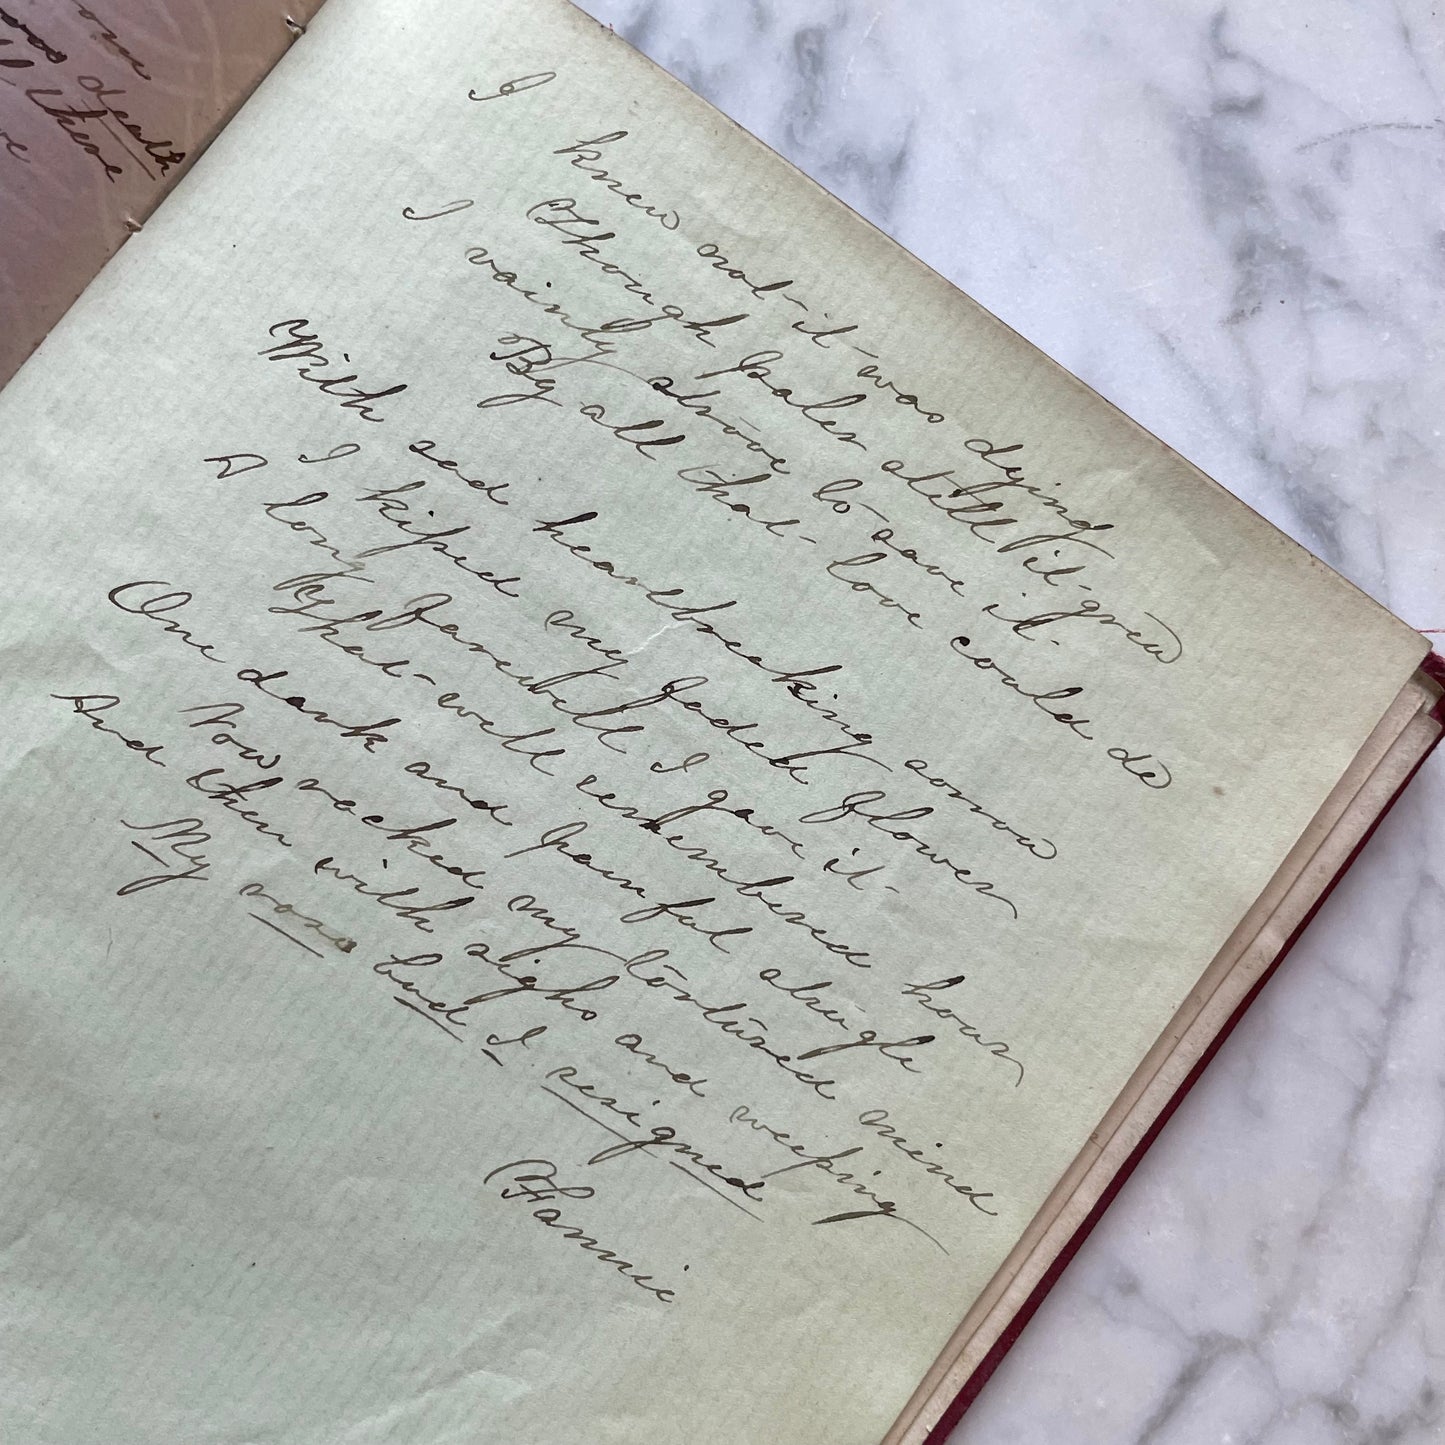 death
there
I knew not it was dying
Though paler still it grew
I vainly strove to save it
By all that love could do
With sad heartbreaking sorrow
I kissed my faded flower
A long farewell I gave it
That well remembered hour
One dark and painful strugle
Now racked my tortured mind
And then with sighs and weeping
My rose bud I resigned
Fannie